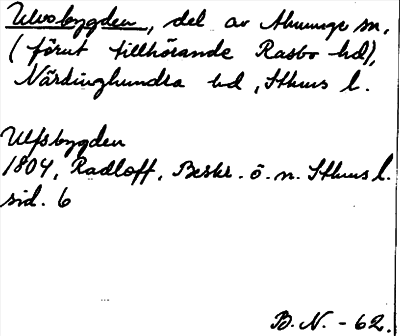 Ulvsbygden, del av Almunge sn,
(förut tillhörande Rasbo hd),
Närdinghundra hd, Sthms l.
Ulfsbygden
1804, Radloff, Beskr. ö. n. Sthms l.
sid. 6
B. N. - 62.